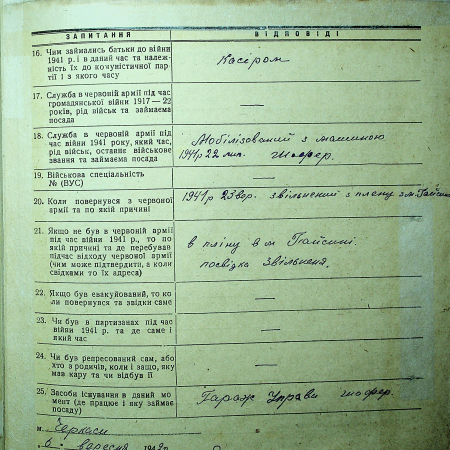 ЗАПИТАННЯ ВІДПОВІДІ
16. Чим займались батьки до війни
1941 р. і в даний час та належ-
ність їх до комуністичної пар-
тії і з якого часу
Касіром
17. Служба в червоній армії під час
громадянської війни 1917—22
років, рід військ та займаєма
посада
—
18. Служба в червоній армії під
час війни 1941 року, який час,
рід військ, останнє військове
звання та займаєма посада
Мобілізований з машиною
1941 р 22 шофер.
19. Військова спеціальність
№ (ВУС)
—
20. Коли повернувся з червоної
армії та по якій причині
1941 р. 23 звільнений з плену з м. Гайсина
21. Якщо не був в червоній армії
під час війни 1941 р., то по
якій причині та де перебував
під час відходу червоної армії
(чим може підтвердити, а коли
свідками то їх адреса)
в пліну в м Гайсині.
посвідка звільненя.
22. Якщо був евакуйований, то ко
ли повернувся та звідки саме
—
23. Чи був в партизанах під час
війни 1941 р. та де саме і
який час
—
24. Чи був репресований сам, або
хто з родичів, коли і защо, яку
мав кару та чи відбув її
—
25. Засоби існування в даний мо
мент (де працює і яку займає
посаду)
Гараж Управи шофер.
м. Черкаси
"6" вересня 1942 р.